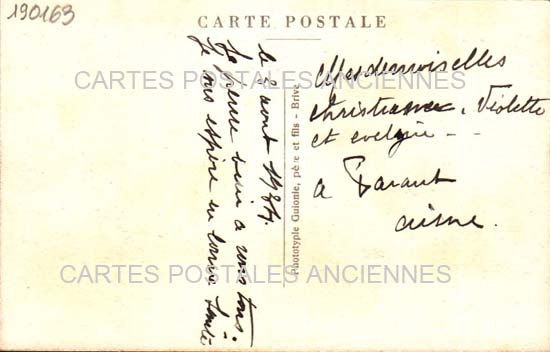 190163
CARTE POSTALE
CARTES POSTALES ANCIENNES
le 3 aout 1934.
Je pense bien a vous tous.
Je vous espère en bonne Santé
Phototypie Guionie, père et fils - Brive
Mesdemoiselles
Christiane, Violette
et evelyne - -
a
aisne.
CARTES POSTALES ANCIENNES